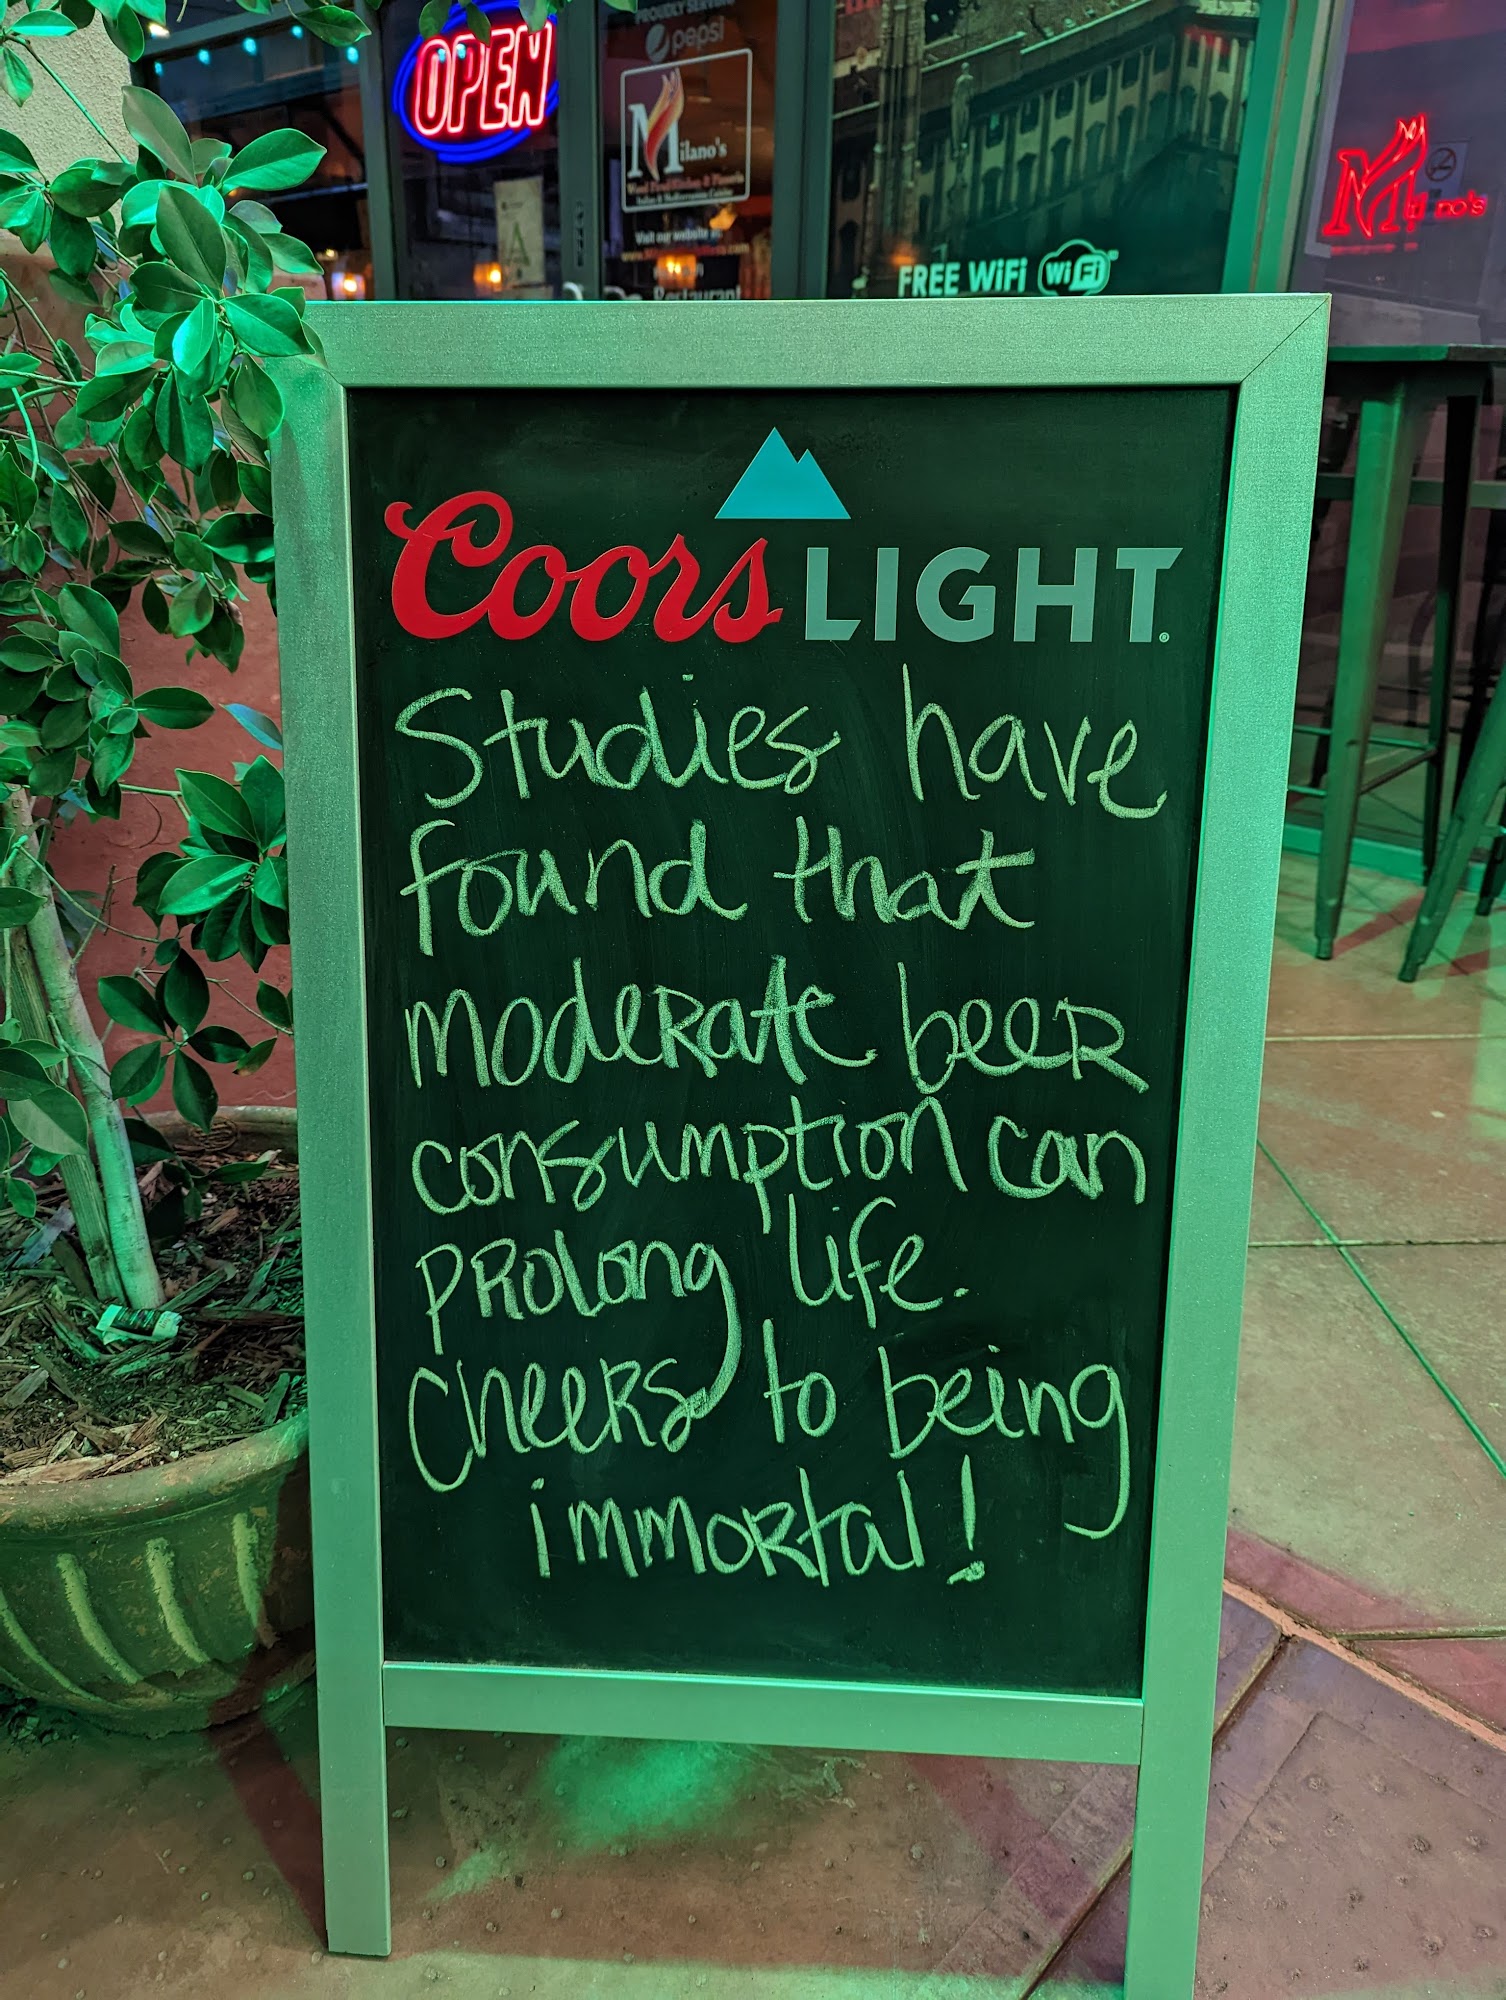 OPEN
PROUDLY SERVING
pepsi
Milano's
Visit our website at
Restaurant
FREE WiFi WiFi
Milano's
Coors LIGHT
Studies have
found that
moderate beer
consumption can
prolong life.
Cheers to being
immortal!